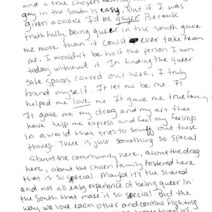 and a true chosen
gay in the South is easy, but if I was
given a choice I'd be gayer. Because
truthfully being queer in the South gave
me more than it could ever take from
me. I wouldn't be half the person I am
today without it. In finding the queer
safe spaces carved out here, I truly
found myself. It let me be me. It
helped me love me. It gave me true family.
It gave me my drag and my art that
have help me express and feel my feelings
in a world that tries to smudge out these
things. There is just something so special
about the community here, about the drag
here, about the chosen family fostered here
that is so special. Maybe it's the shared
and not all easy experience of being queer in
the South that make it so special. But the
way we love each other and continue fighting